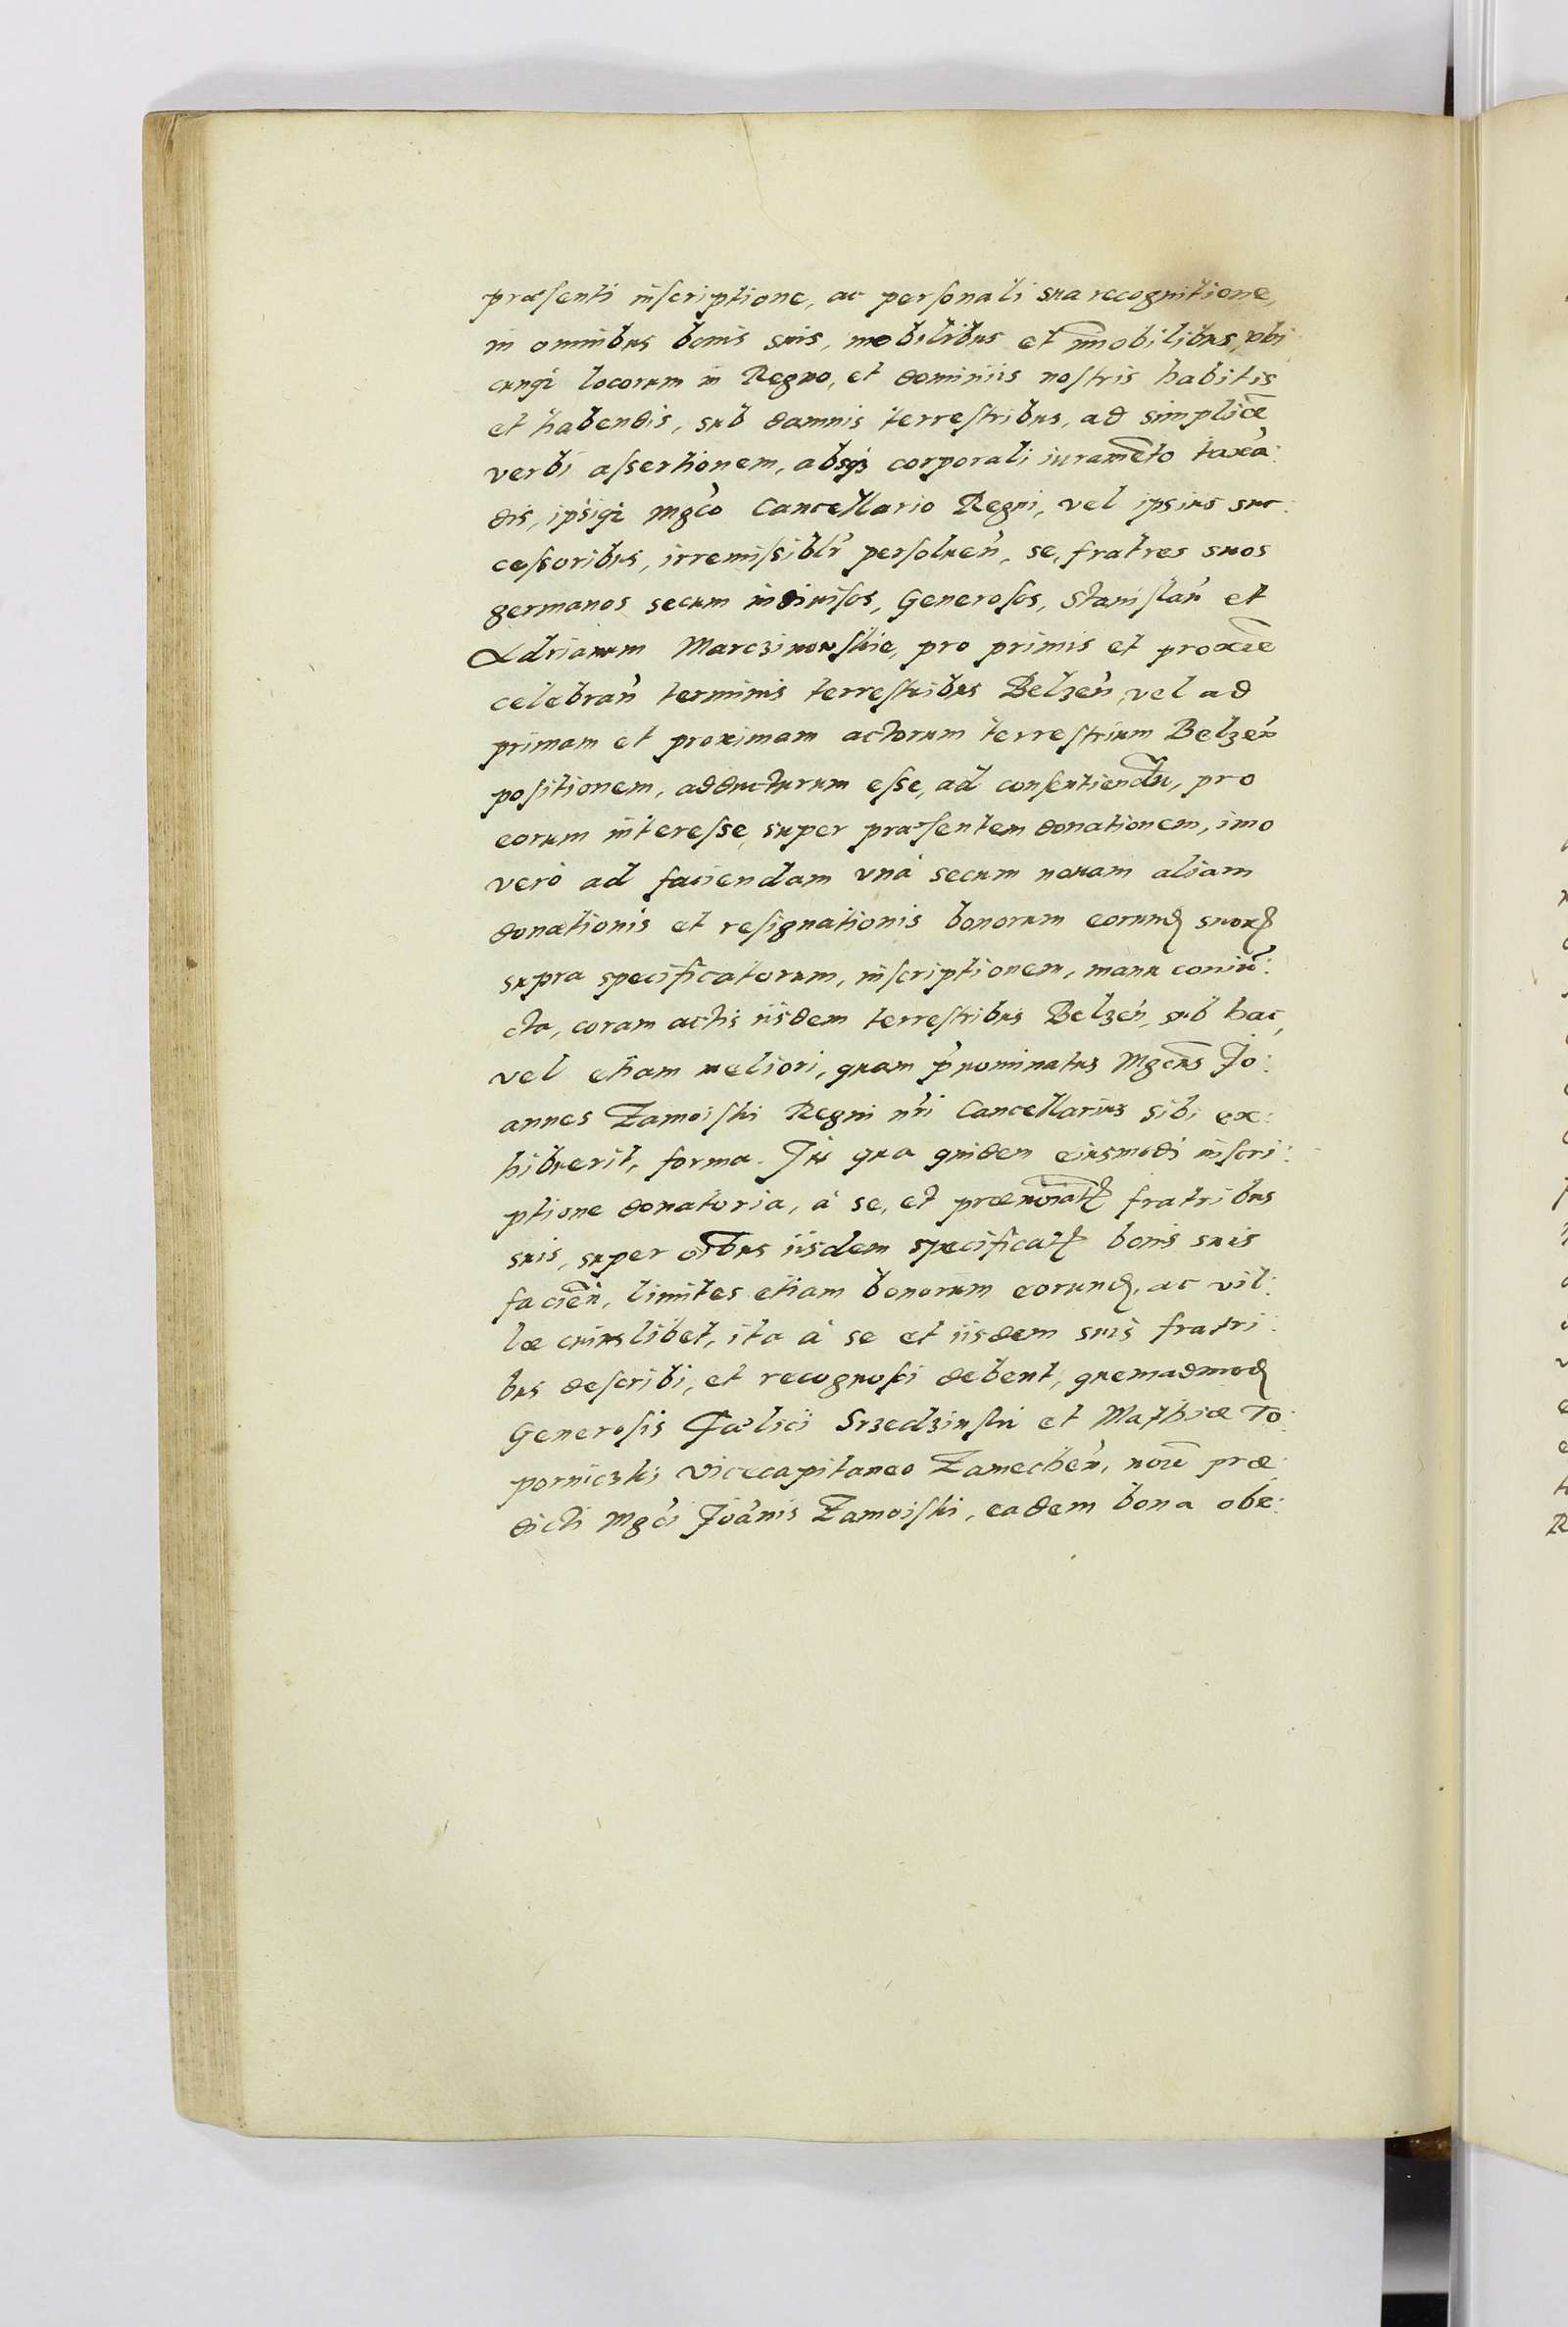 præsenti inscriptione, ac personali sua recognitione,
in omnibus bonis suis, mobilibus et im̄obilibus, vbi
cunq; locorum in Regno, et dominiis nostris habitis
et habendis, sub damnis terrestribus, ad simplicē
verbi assertionem, absq; corporali iuramēto taxā:
dis, ipsiq; Mgco Cancellario Regni, vel ipsius suc:
cessoribus, irremissiblr persoluen, se, fratres suos
germanos secum indiuisos, Generosos, Stanislau et
Adrianum Marczinowskie, pro primis et proxime
celebran terminis terrestribus Belzen, vel ad
primam et proximam actorum terrestrium Belzen
positionem, adducturum esse, ad consentiendu, pro
eorum interesse, super præsentem donationem, imo
verò ad faciendam vnà secum nouam aliam
donationis et resignationis bonorum eorund suor
supra specificatorum, inscriptionem, manu coniū:
cta, coram actis iisdem terrestribus Belzen, sub hac,
vel etiam meliori, quam prnominatus Mgcus Jo:
annes Zamoiski Regni nri Cancellarius sibi ex:
hibuerit, forma. In qua quidem eiusmodi inscri:
ptione donatoria, à se, et prænoiat fratribus
suis, super oibus iisdem specificat bonis suis
facien, limites etiam bonorum eorund, ac vil:
læ cuiuslibet, ita à se et iisdem suis fratri:
bus describi, et recognosci debent, quemadmod
Generosis Fœlici Srzedzinski et Mathiæ To:
porniczki Vicecapitaneo Zamechen, noie præ:
dicti Mgci Joānis Zamoiski, eadem bona obe: